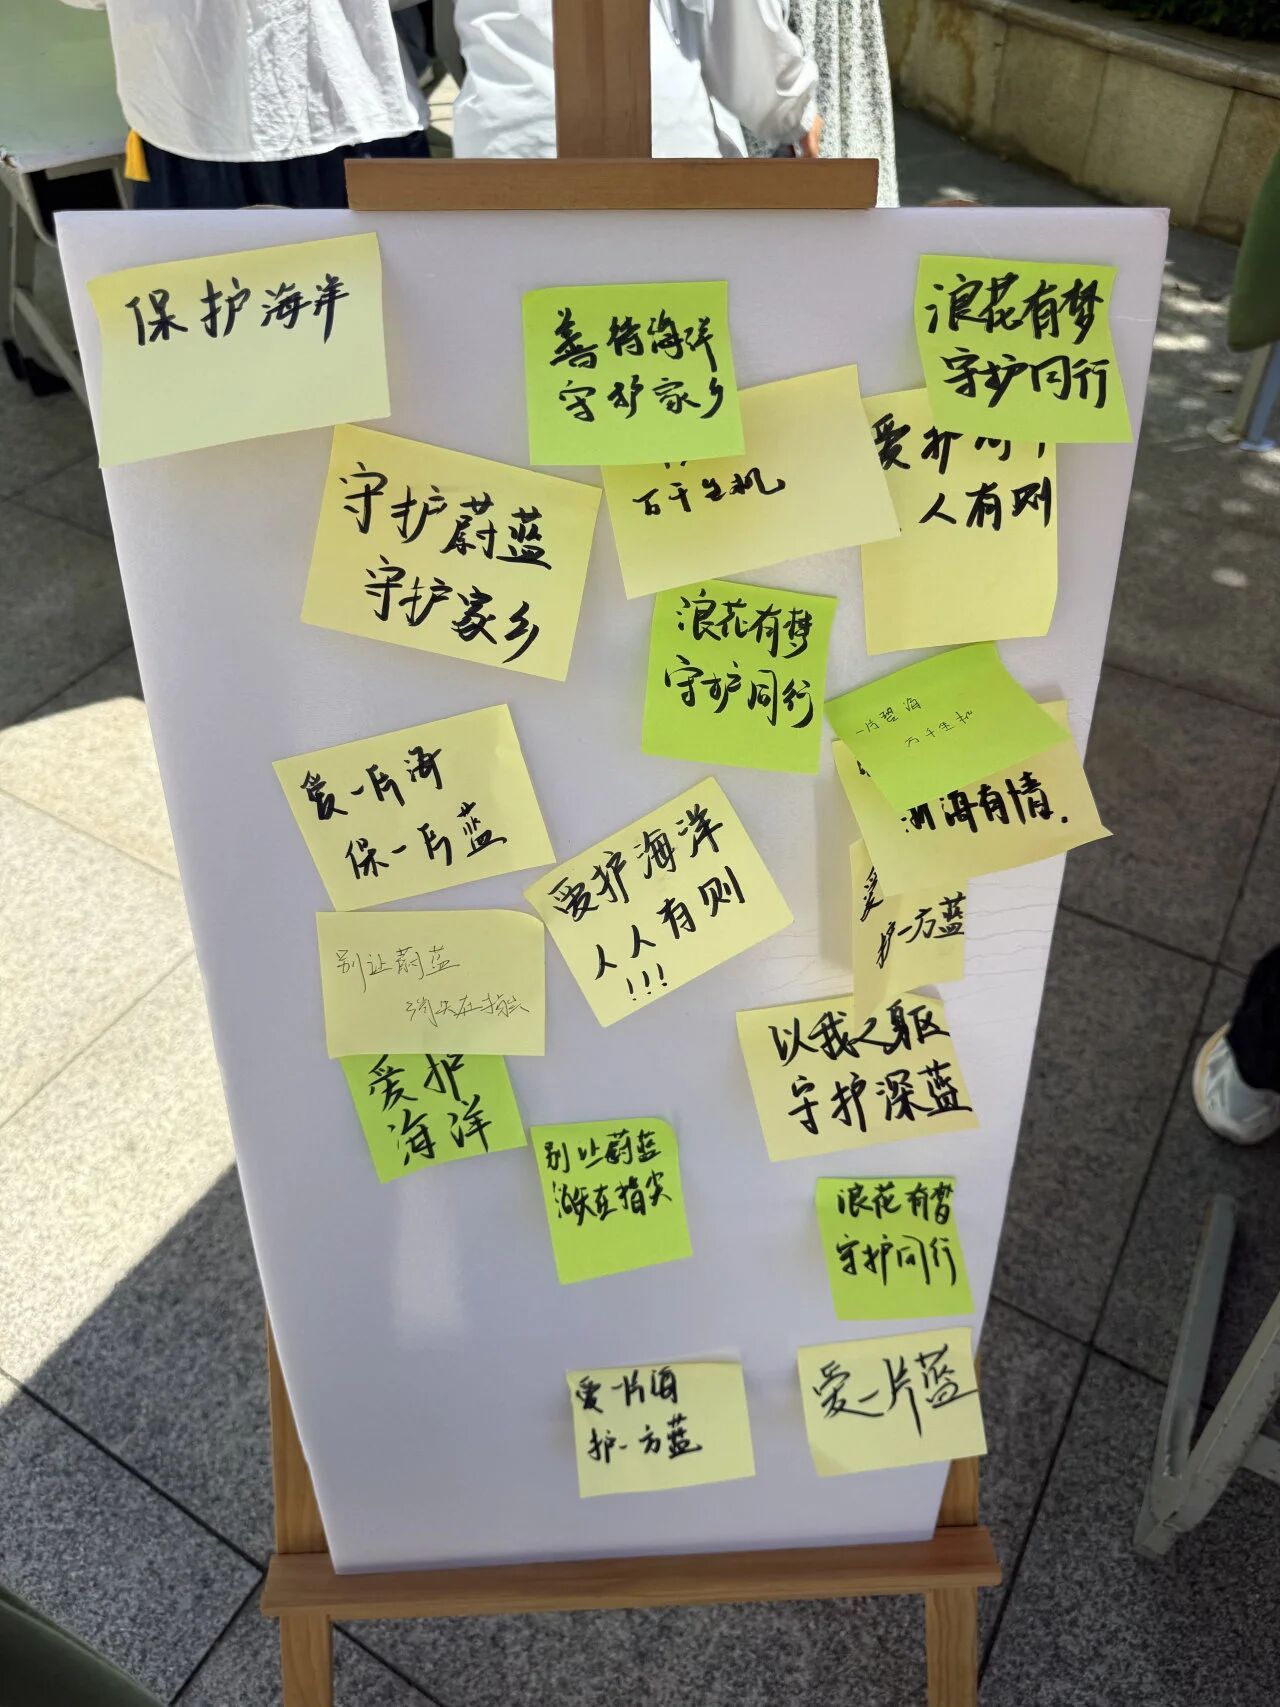 保护海洋
善待海洋
守护家乡
浪花有梦
守护同行
守护蔚蓝
守护家乡
万千生机
爱护海洋
人有则
浪花有梦
守护同行
一片碧海
万千生机
海有情.
爱一片海
保一片蓝
爱护海洋
人人有则
!!!
爱
护一方蓝
别让蔚蓝
消失在指尖
以我之躯
守护深蓝
爱护
海洋
别让蔚蓝
消失在指尖
浪花有梦
守护同行
爱一片海
护一方蓝
爱一片蓝